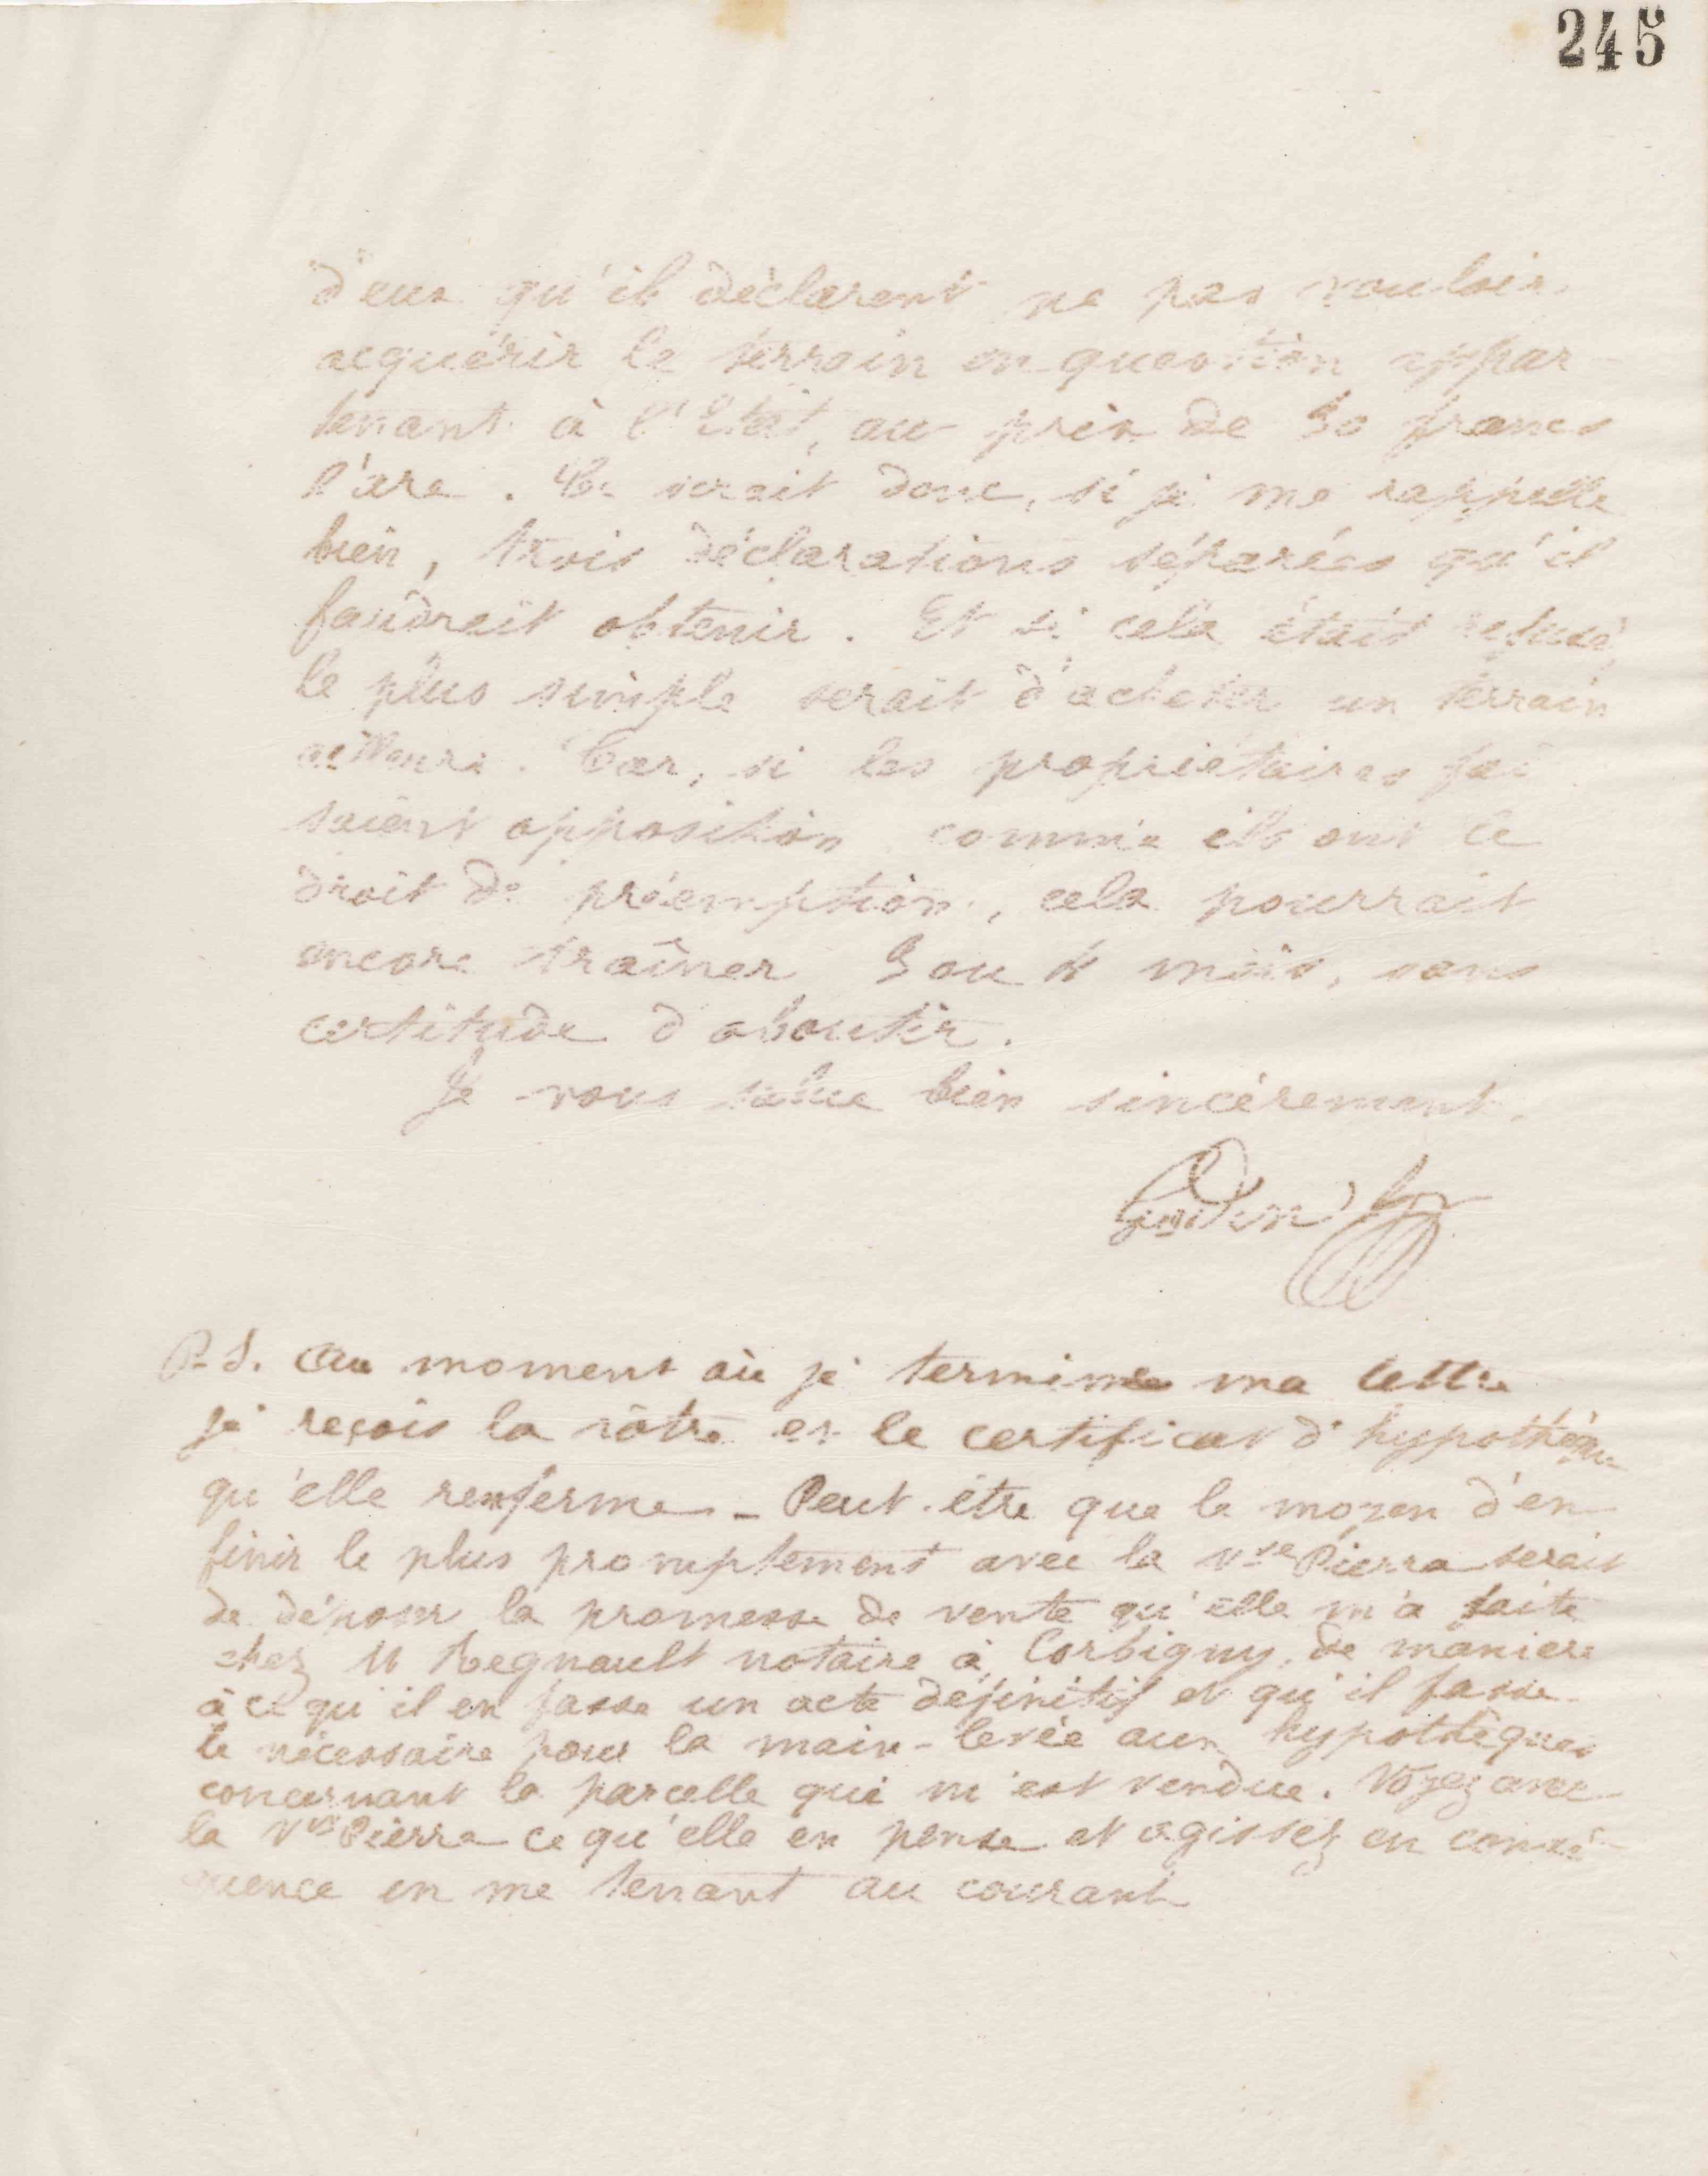 245
d'eux qu'il déclarent ne pas vouloir
acquérir le terrain en question appar-
tenant à l'Etat, au prix de 30 francs
l'are. Ce serait donc, si je me rappelle
bien, trois déclarations séparées qu'il
faudrait obtenir. Et si cela était refusé,
le plus simple serait d'acheter un terrain
ailleurs. Car, si les propriétaires fai
saient opposition comme ils ont le
droit de préemption, cela pourrait
encore traîner 3 ou 4 mois, sans
certitude d'aboutir.
Je vous salue bien sincèrement.
Godin
P.S. Au moment où je termine ma lettre
je reçois la vôtre et le certificat d'hypothèque
qu'elle renferme – Peut-être que le moyen d'en
finir le plus promptement avec la Vve Pierre serait
de déposer la promesse de vente qu'elle m'a faite
chez M Regnault notaire à Corbigny, de manière
à ce qu'il en fasse un acte définitif et qu'il fasse
le nécessaire pour la main-levée aux hypothèques
concernant la parcelle qui m'est vendue. Voyez avec
la Vve Pierre ce qu'elle en pense et agissez en consé-
quence en me tenant au courant